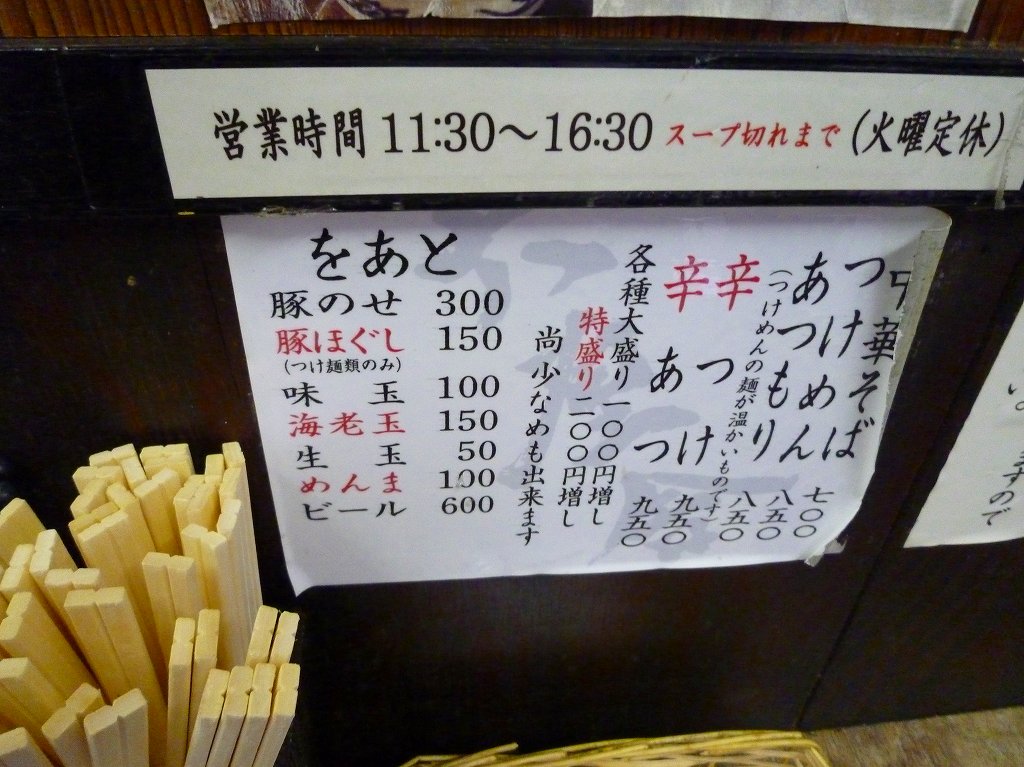 営業時間 11:30～16:30 スープ切れまで (火曜定休)
中華そば 七〇〇
つけめん 八五〇
あつもり 八五〇
(つけめんの麺が温かいものです)
辛つけ 九五〇
辛あつ 九五〇
各種大盛り一〇〇円増し
特盛り二〇〇円増し
尚少なめも出来ます
をあと
豚のせ 300
豚ほぐし 150
(つけ麺類のみ)
味玉 100
海老玉 150
生玉 50
めんま 100
ビール 600
ますので